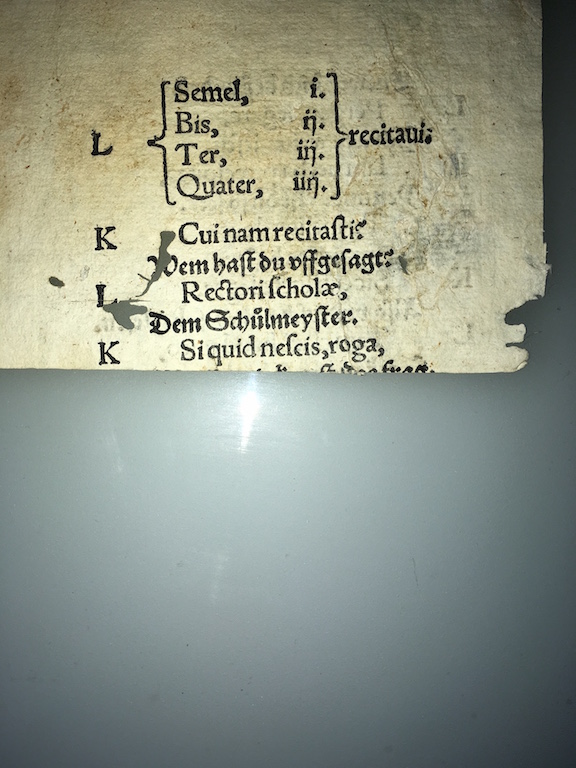 Semel, i.
Bis, ij.
L Ter, iij. recitaui:
Quater, iiij.
K Cui nam recitasti?
Wem hast du vffgesagt?
L Rectori scholæ,
Dem Schůlmeyster.
K Si quid nescis, roga,